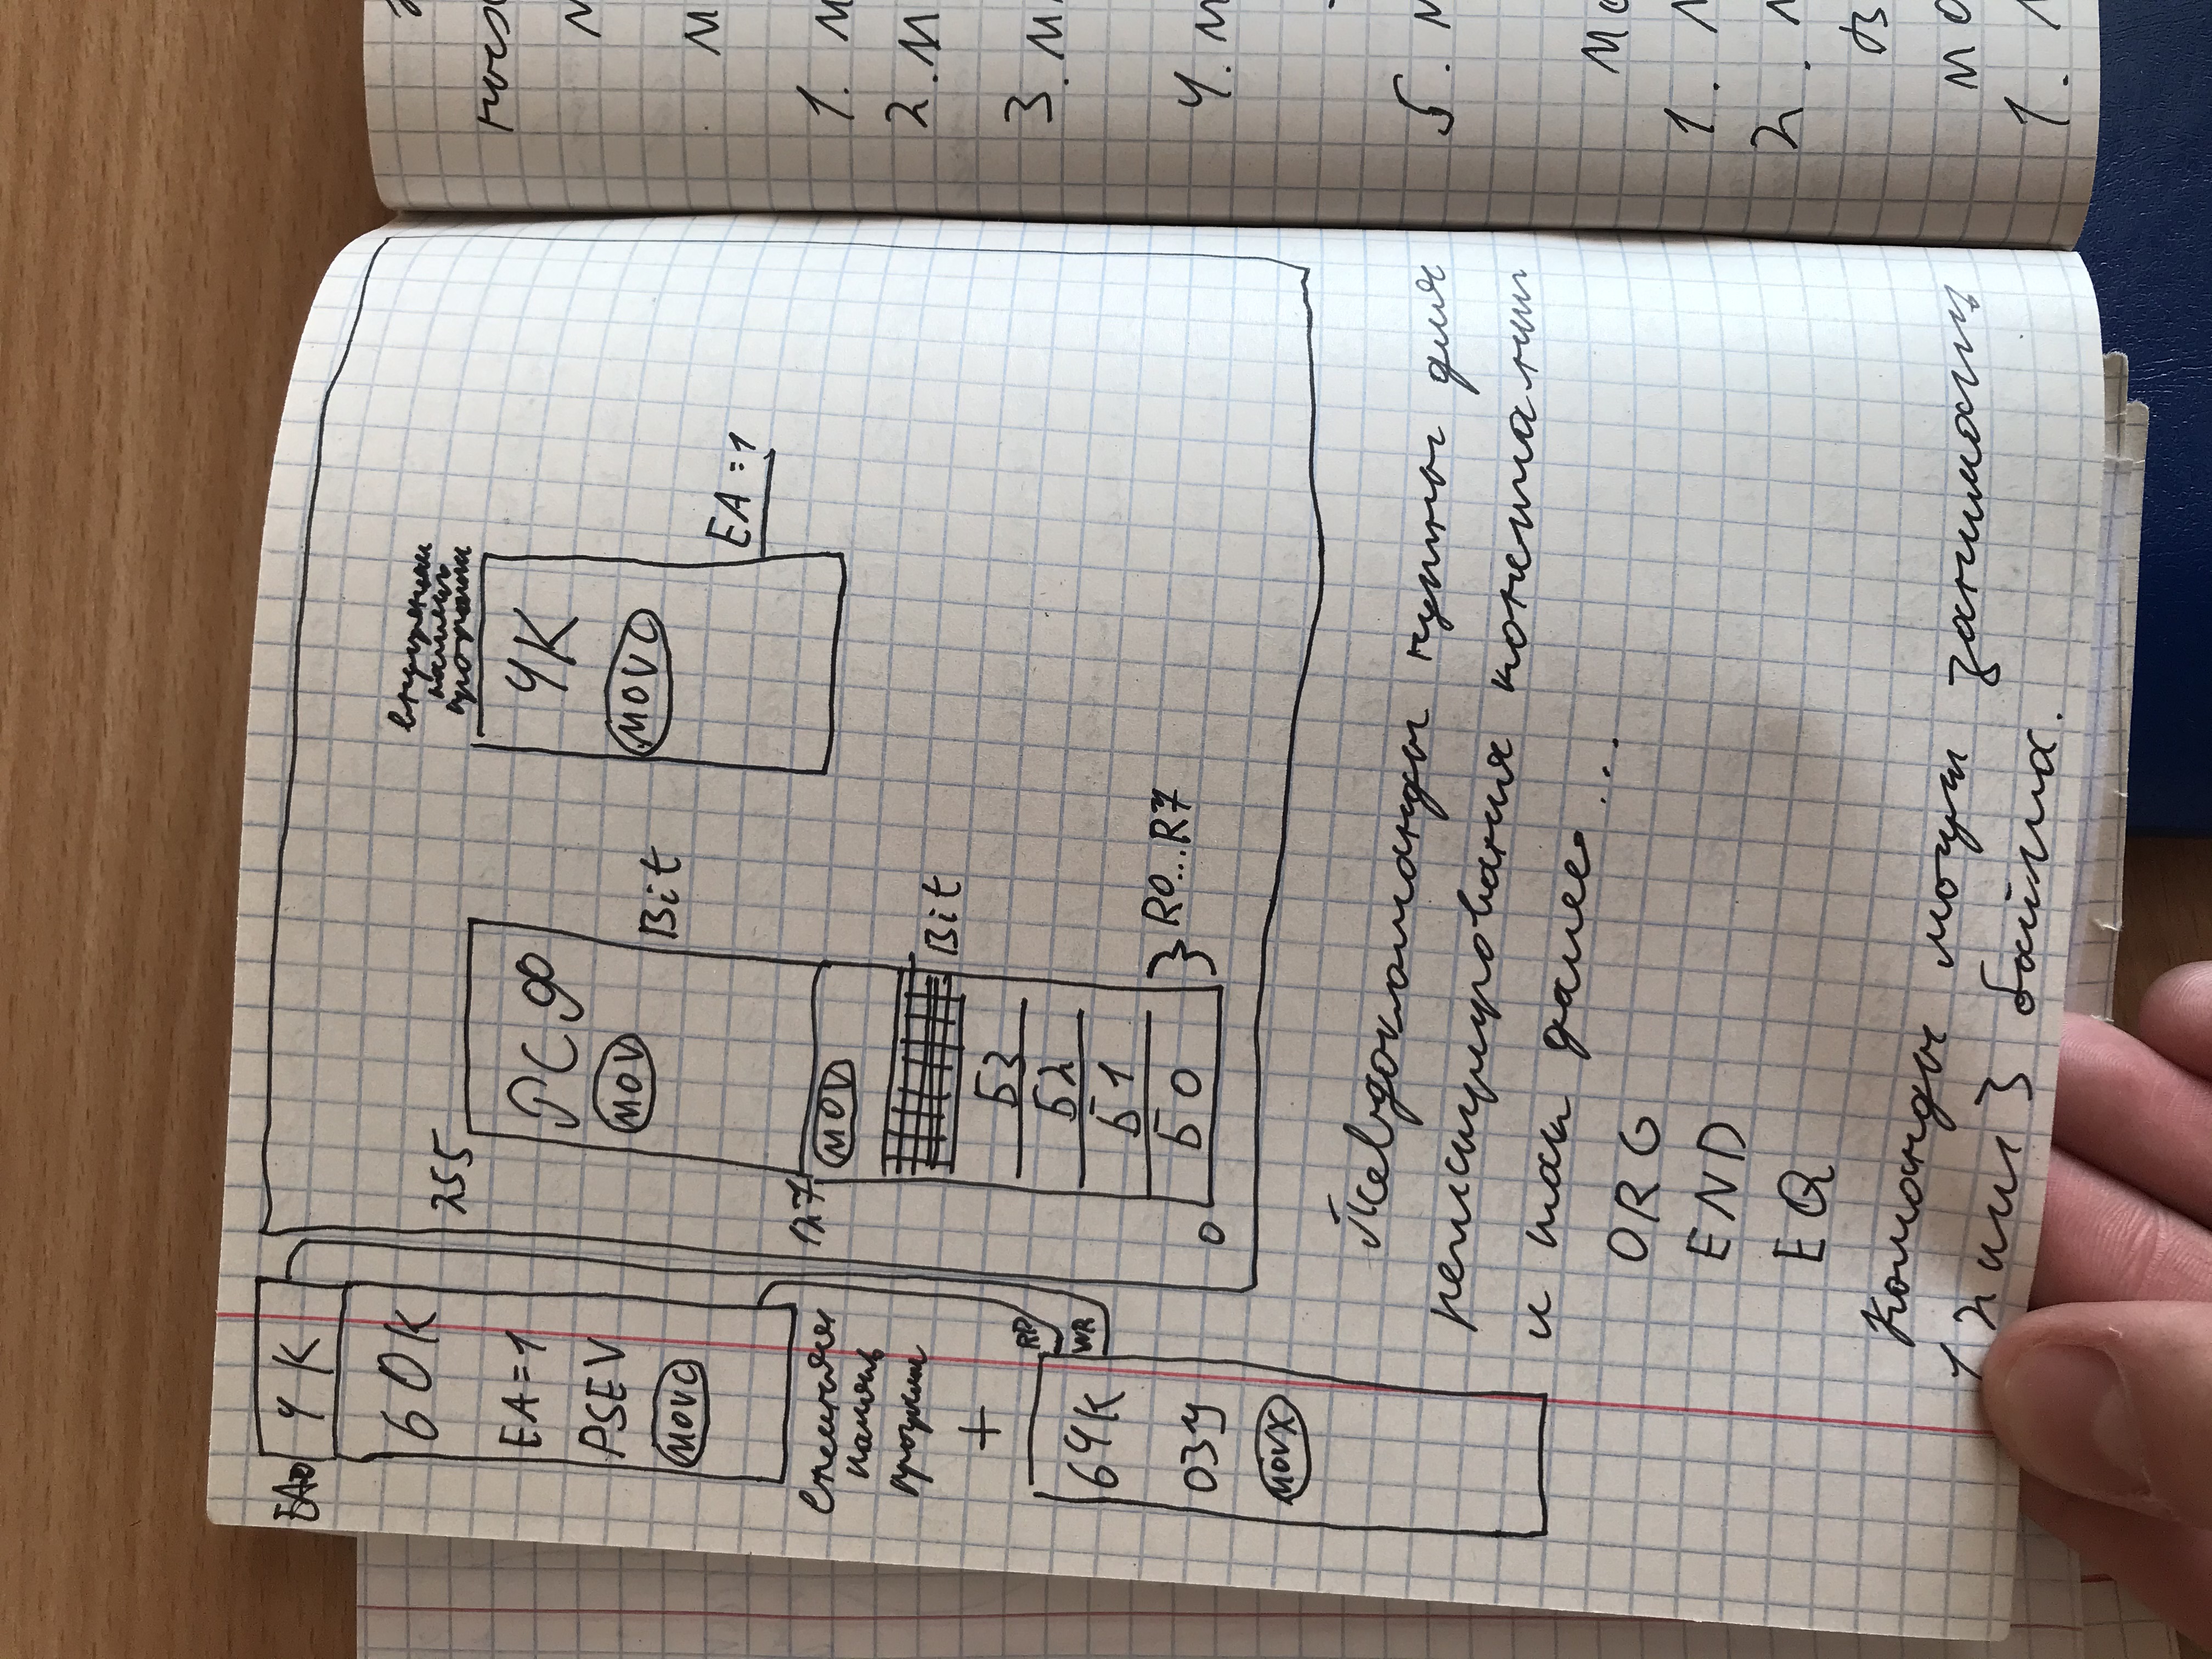 EA=0
4K
60K
EA=1
PSEV
MOVC
внешняя
память
программ
+
RD
WR
64K
ОЗУ
MOVX
255
РСФ
MOV
Bit
127
MOV
Bit
Б3
Б2
Б1
Б0
R0...R7
0
внутренняя
память
программ
4K
MOVC
EA=1
Псевдокоманды нужны для
регистрирования констант
и так далее...
ORG
END
EQ
Команды могут занимать
1 2 или 3 байта.
1. М
2. М
3. М
4. М
5. М
1. М
2. М
В
1.